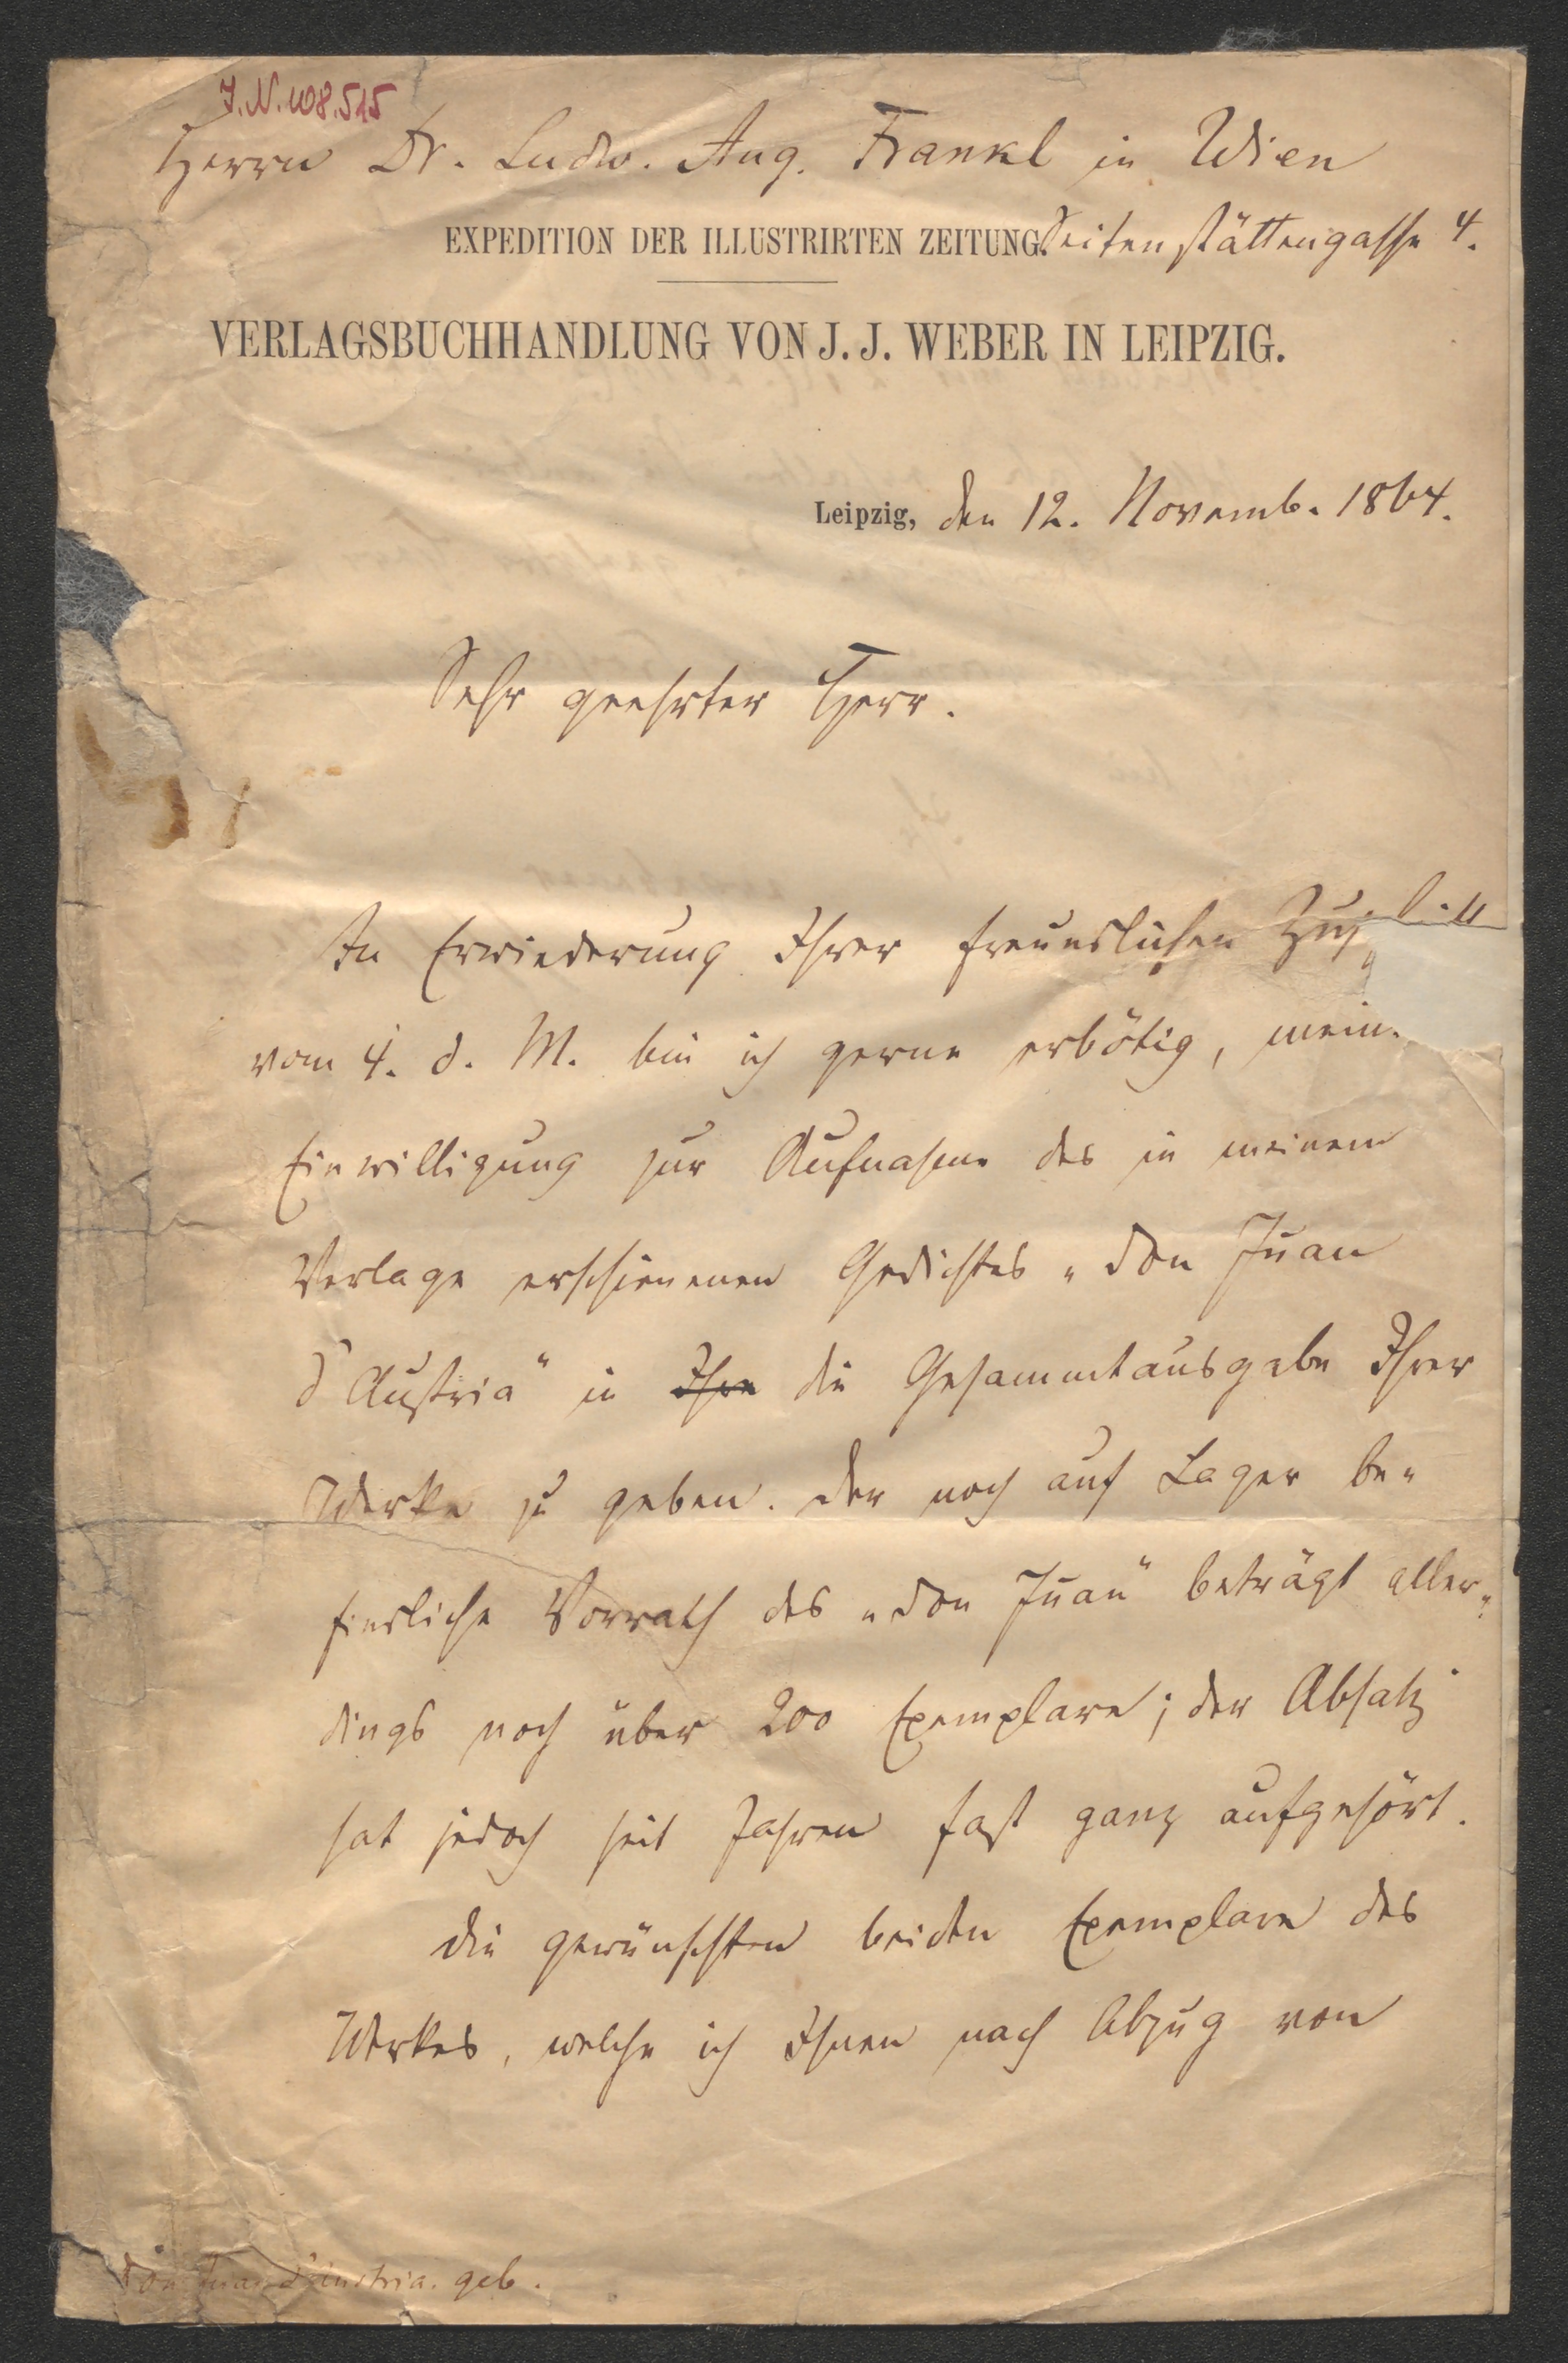 J.N. 108.515
Herrn Dr. Ludw. Aug. Frankl in Wien
EXPEDITION DER ILLUSTRIRTEN ZEITUNG. Seitenstättengasse 4.
VERLAGSBUCHHANDLUNG VON J. J. WEBER IN LEIPZIG.
Leipzig, den 12. Novemb. 1864.
Sehr geehrter Herr.
In Erwiederung Ihrer freundlichen
vom 4. d. M. bin ich gerne erbötig, mein
Einwilligung zur Aufnahme des in meinem
Verlage erschienenen Gedichtes „Don Juan
d'Austria" in Ihre die Gesammtausgabe Ihrer
Werke zu geben. Der noch auf Lager be-
findliche Vorrath des „Don Juan" beträgt aller-
dings noch über 200 Exemplare; der Absatz
hat jedoch seit Jahren fast ganz aufgehört.
Die gewünschten beiden Exemplare des
Werkes, welche ich Ihnen nach Abzug von
Don Juan d'Austria. geb.